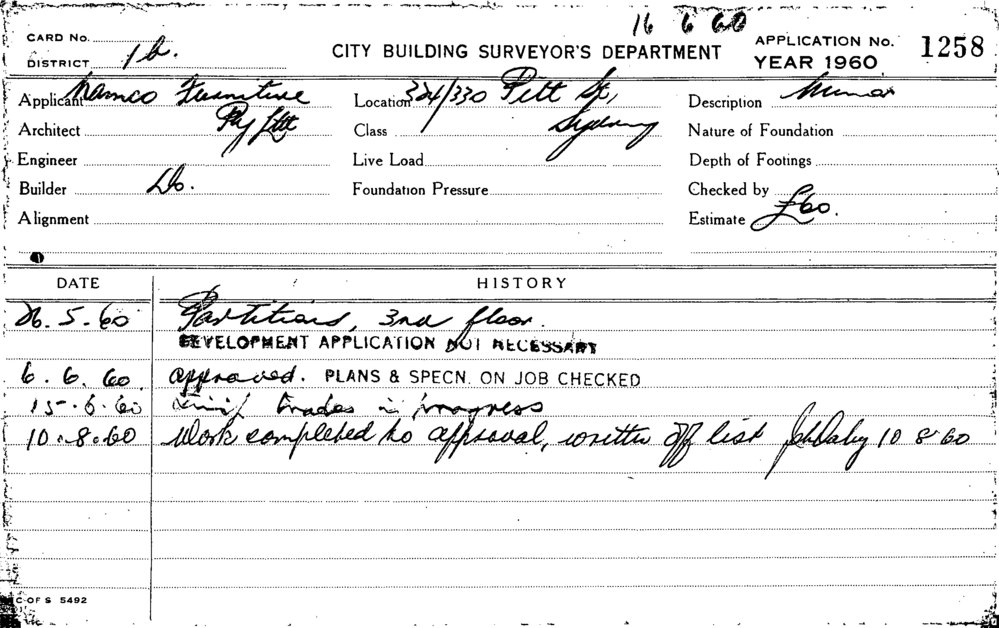 16 6 60
CARD No.
DISTRICT 1b.
CITY BUILDING SURVEYOR'S DEPARTMENT
APPLICATION No. 1258
YEAR 1960
Applicant Namco Furniture
Pty Ltd
Location 324/330 Pitt St,
Sydney
Description Minor
Architect
Class
Nature of Foundation
Engineer
Live Load
Depth of Footings
Builder Do.
Foundation Pressure
Checked by
Alignment
Estimate £60.
DATE HISTORY
26.5.60 Partitions, 3rd floor.
DEVELOPMENT APPLICATION NOT NECESSARY
6.6.60. approved. PLANS & SPECN. ON JOB CHECKED
15.6.60 trades in progress
10.8.60 Work completed to approval, written off list 10 8 60
C OF S 5492